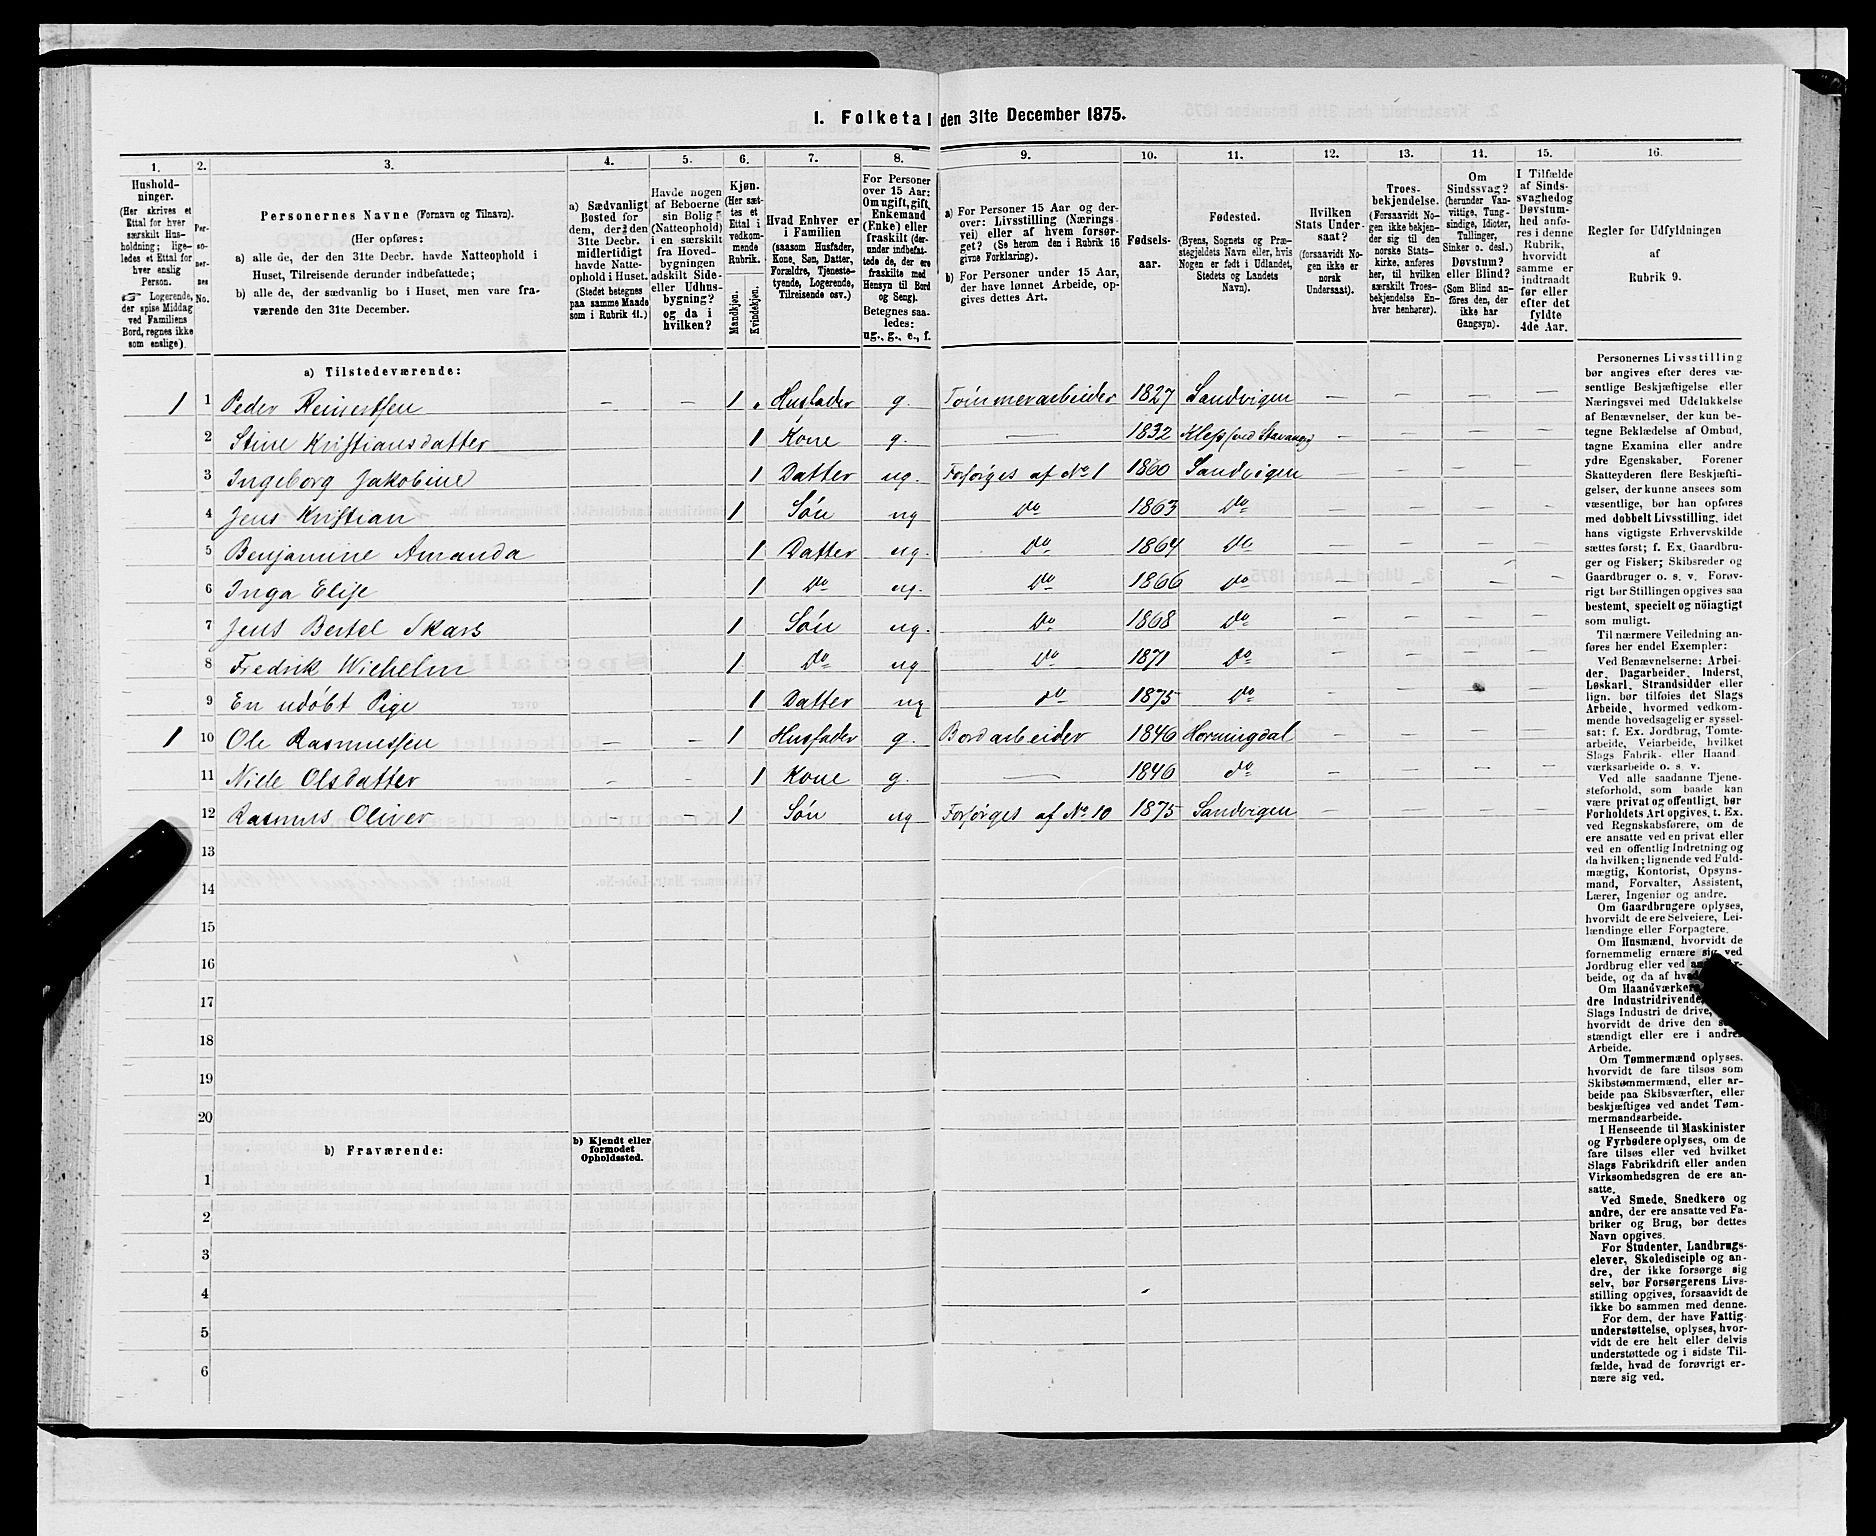 1. Folketal den 31te December 1875.
1. 2. 3. 4. 5. 6. 7. 8. 9. 10. 11. 12. 13. 14. 15. 16.
Hushold-
ninger.
(Her skrives et
Ettal for hver
særskilt Hus-
holdning; lige-
ledes et Ettal for
hver enslig
Person.
☞ Logerende,
der spise Middag
ved Familiens
Bord, regnes ikke
som enslige).
Per-
so-
ner-
nes
No.
Personernes Navne (Fornavn og Tilnavn).
(Her opføres:
a) alle de, der den 31te Decbr. havde Natteophold i
Huset, Tilreisende derunder indbefattede;
b) alle de, der sædvanlig bo i Huset, men vare fra-
værende den 31te December.
a) Sædvanligt
Bosted for
dem, der den
31te Decbr.
midlertidigt
havde Natte-
ophold i Huset.
(Stedet betegnes
paa samme Maade
som i Rubrik 11.)
Havde nogen
af Beboerne
sin Bolig
(Natteophold)
i en særskilt
fra Hoved-
bygningen
adskilt Side-
eller Udhus-
bygning?
og da i
hvilken?
Kjøn.
(Her sæt-
tes et
Ettal i
vedkom-
mende
Rubrik.
Mandkjøn.
Kvindekjøn.
Hvad Enhver er
i Familien
(saasom Husfader,
Kone, Søn, Datter,
Forældre, Tjeneste-
tyende, Logerende,
Tilreisende osv.)
For Personer
over 15 Aar:
Om ugift, gift,
Enkemand
(Enke) eller
fraskilt (der-
under indbefat-
tede de, der ere
fraskilte med
Hensyn til Bord
og Seng).
Betegnes saa-
ledes:
ug., g., e., f.
a) For Personer 15 Aar og der-
over: Livsstilling (Nærings
vei) eller af hvem forsør-
get? (Se herom den i Rubrik 16
givne Forklaring).
b) For Personer under 15 Aar,
der have lønnet Arbeide, op-
gives dettes Art.
Fødsels-
aar.
Fødested.
(Byens, Sognets og Præ-
stegjeldets Navn eller, hvis
Nogen er født i Udlandet,
Stedets og Landets
Navn).
Hvilken
Stats Under-
saat?
(forsaavidt No-
gen ikke er
norsk
Undersaat).
Troes-
bekjendelse.
(Forsaavidt No-
gen ikke bekjen-
der sig til den
norske Stats-
kirke, anføres
her, til hvilken
særskilt Troes-
bekjendelse En-
hver henhører).
Om
Sindssvag?
(herunder Van-
vittige, Tung-
sindige, Idioter,
Tullinger,
Sinker o. desl.)
Døvstum?
eller Blind?
(Som Blind an-
føres den, der
ikke har
Gangsyn).
I Tilfælde
af Sinds-
svaghed og
Døvstum-
hed anfø-
res i denne
Rubrik,
hvorvidt
samme er
indtraadt
før eller
efter det
fyldte
4de Aar.
Regler for Udfyldningen
af
Rubrik 9.
a) Tilstedeværende:
1 1 Peder Reinertsen – – 1 Husfader g. Tømmerarbeider 1827 Sandvigen – – – –
2 Stine Kristiansdatter 1 Kone g. — 1832 Klep ved Stavanger – – – –
3 Ingeborg Jakobine 1 Datter ug. Forsørges af No 1 1860 Sandvigen – – – –
4 Jens Kristian 1 Søn ug do 1863 do – – – –
5 Benjamine Amanda 1 Datter ug. do 1864 do – – – –
6 Inga Elise 1 do ug. do 1866 do – – – –
7 Jens Bertel Skars 1 Søn ug. do 1868 do – – – –
8 Fredrik Wichelm 1 do ug do 1871 do – – – –
9 En udøbt Pige 1 Datter ug do 1875 do – – – –
1 10 Ole Rasmussen – – 1 Husfader g. Bordarbeider 1846 Horningdal – – – –
11 Niele Olsdatter – – 1 Kone g. — 1846 do – – – –
12 Rasmus Oliver – – 1 Søn ug Forsørges af No 10 1875 Sandvigen – – – –
13
14
15
16
17
18
19
20
b) Fraværende:
b) Kjendt eller
formodet
Opholdssted.
1
2
3
4
5
6
Personernes Livsstilling
bør angives efter deres væ-
sentlige Beskjæftigelse eller
Næringsvei med Udelukkelse
af Benævnelser, der kun be-
tegne Beklædelse af Ombud,
tagne Examina eller andre
ydre Egenskaber. Forener
Skatteyderen flere Beskjæfti-
gelser, der kunne ansees som
væsentlige, bør han opføres
med dobbelt Livsstilling, idet
hans vigtigste Erhvervskilde
sættes først; f. Ex. Gaardbru-
ger og Fisker; Skibsreder og
Gaardbruger o. s. v. Forøv-
rigt bør Stillingen opgives saa
bestemt, specielt og nöiagtigt
som muligt.
Til nærmere Veiledning an-
føres her endel Exempler:
Ved Benævnelserne: Arbei-
der, Dagarbeider, Inderst,
Løskarl, Strandsidder eller
lign. bør tilføies det Slags
Arbeide, hvormed vedkom-
mende hovedsagelig er syssel-
sat; f. Ex. Jordbrug, Tomte-
arbeide, Veiarbeide, hvilket
Slags Fabrik- eller Haand
værksarbeide o. s. v.
Ved alle saadanne Tjene-
steforhold, som baade kan
være privat og offentligt, bør
Forholdets Art opgives, t. Ex.
ved Regnskabsførere, om de
ere ansatte ved en privat eller
ved en offentlig Indretning og
da hvilken; lignende ved Fuld-
mægtig, Kontorist, Opsyns-
mand, Forvalter, Assistent,
Lærer, Ingeniør og andre.
Om Gaardbrugere oplyses,
hvorvidt de ere Selveiere, Lei-
lændinge eller Forpagtere.
Om Husmænd, hvorvidt de
fornemmelig ernære sig ved
Jordbrug eller ved
beide, og da af
Om Haandværkere
dre Industridrivende,
Slags Industri de drive,
hvorvidt de drive den
stændigt eller ere i andres
Arbeide.
Om Tømmermænd oplyses,
hvorvidt de fare tilsøs som
Skibstømmermænd, eller ar-
beide paa Skibsværfter, eller
beskjæftiges ved andet Tøm-
mermandsarbeide.
I Henseende til Maskinister
og Fyrbødere oplyses, om de
fare tilsøs eller ved hvilket
Slags Fabrikdrift eller anden
Virksomhedsgren de ere an-
satte.
Ved Smede, Snedkere og
andre, der ere ansatte ved Fa-
briker og Brug, bør dettes
Navn opgives.
For Studenter, Landbrugs-
elever, Skoledisciple og an-
dre, der ikke forsørge sig
selv, bør Forsørgerens Livs-
stilling opgives, forsaavidt de
ikke bo sammen med denne.
For dem, der have Fattig-
understøttelse, oplyses, hvor-
vidt de ere helt eller delvis
understøttede og i sidste Til-
fælde, hvad de forøvrigt er-
nære sig ved.